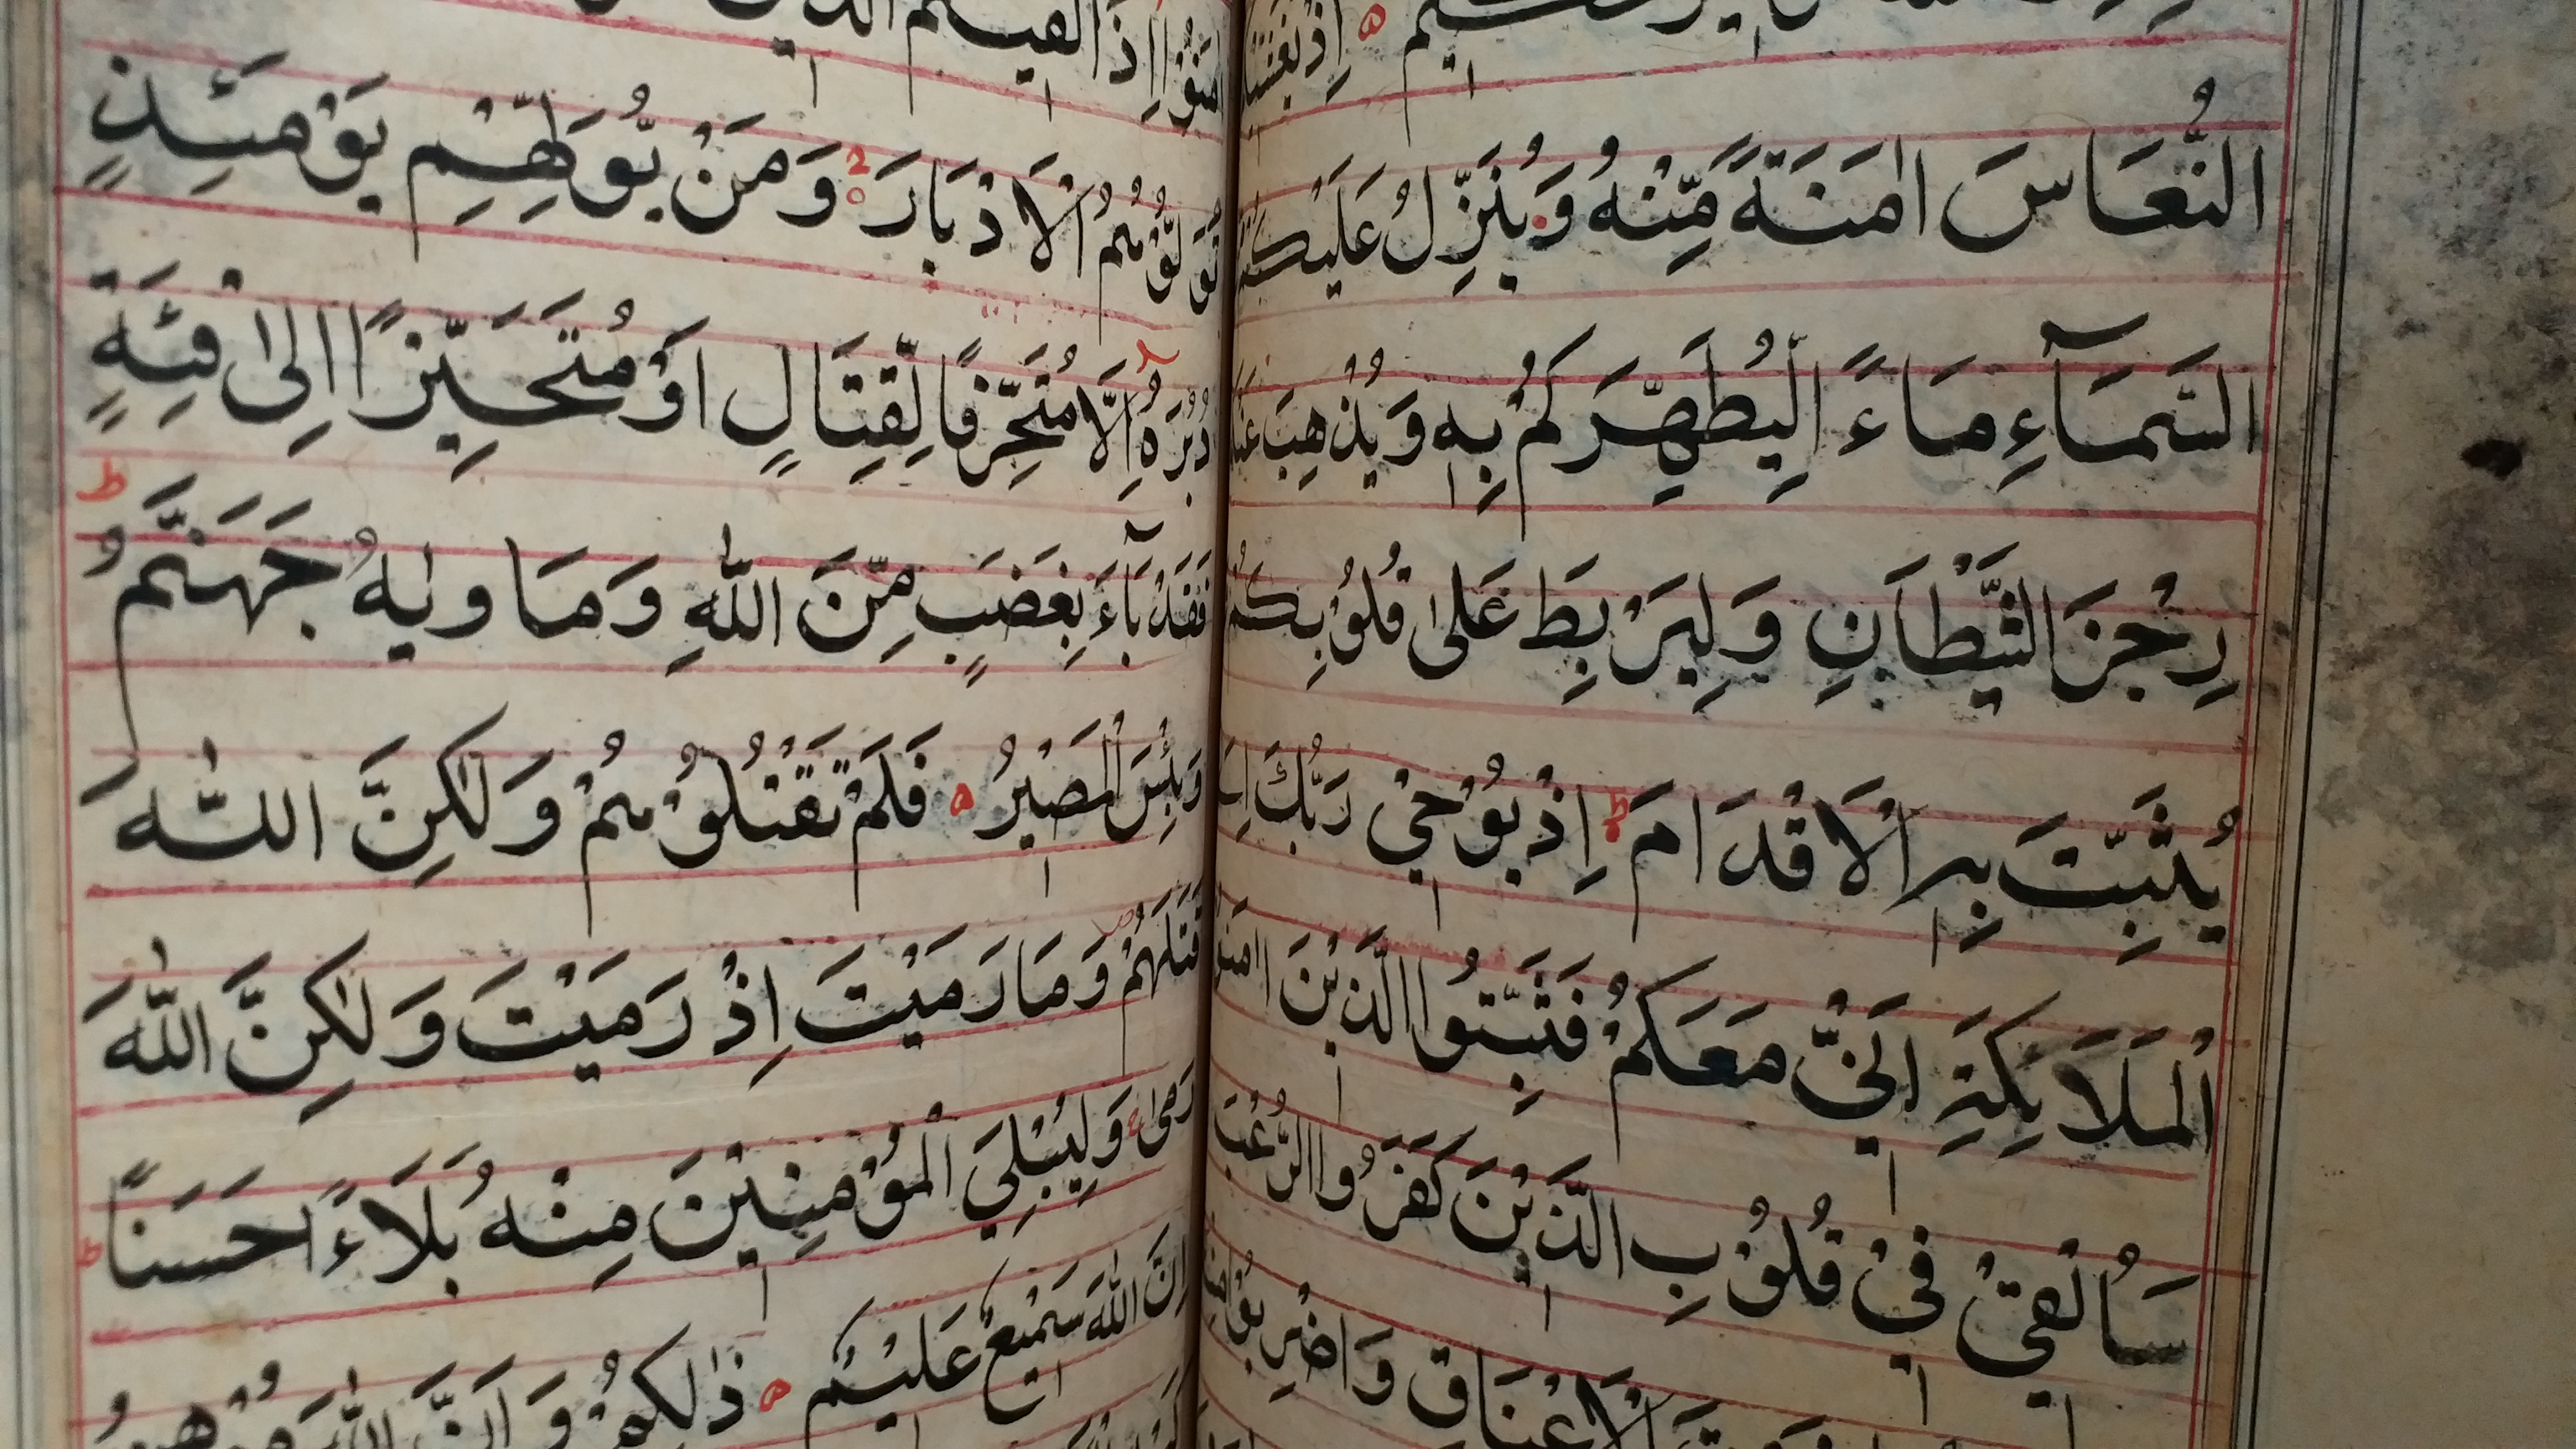 إِذْ يُغَشِّيْكُمُ
النُّعَاسَ اَمَنَةً مِّنْهُ وَيُنَزِّلُ عَلَيْكُمْ
السَّمَآءِ مَاءً لِّيُطَهِّرَكُمْ بِهٖ وَيُذْهِبَ عَنْكُمْ
رِجْزَ الشَّيْطَانِ وَلِيَرْبِطَ عَلٰى قُلُوْبِكُمْ
يُثَبِّتَ بِهِ الْاَقْدَامَ ط اِذْ يُوْحِيْ رَبُّكَ اِلَى
الْمَلَائِكَةِ اَنِّيْ مَعَكُمْ فَثَبِّتُوا الَّذِيْنَ اٰمَنُوْا
سَاُلْقِيْ فِيْ قُلُوْبِ الَّذِيْنَ كَفَرُوا الرُّعْبَ
الْاَعْنَاقِ وَاضْرِبُوْا مِنْهُمْ
اٰمَنُوْا اِذَا لَقِيْتُمُ الَّذِيْنَ
تُوَلُّوْهُمُ الْاَدْبَارَ وَمَنْ يُّوَلِّهِمْ يَوْمَئِذٍ
دُبُرَهُ اِلَّا مُتَحَرِّفًا لِّقِتَالٍ اَوْ مُتَحَيِّزًا اِلٰى فِئَةٍ
فَقَدْ بَآءَ بِغَضَبٍ مِّنَ اللّٰهِ وَمَاوٰىهُ جَهَنَّمُ ط
وَبِئْسَ الْمَصِيْرُ ۵ فَلَمْ تَقْتُلُوْهُمْ وَلٰكِنَّ اللّٰهَ
قَتَلَهُمْ وَمَا رَمَيْتَ اِذْ رَمَيْتَ وَلٰكِنَّ اللّٰهَ
رَمٰى وَلِيُبْلِيَ الْمُؤْمِنِيْنَ مِنْهُ بَلَاءً حَسَنًا ط
اِنَّ اللّٰهَ سَمِيْعٌ عَلِيْمٌ ۵ ذٰلِكُمْ وَاَنَّ اللّٰهَ مُوْهِنُ